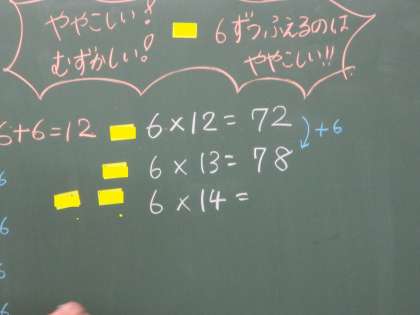 ややこしい!
むずかしい!
6ずつふえるのは
ややこしい!!
6+6=12
6×12=72
+6
6×13=78
6
6×14=
6
6
6